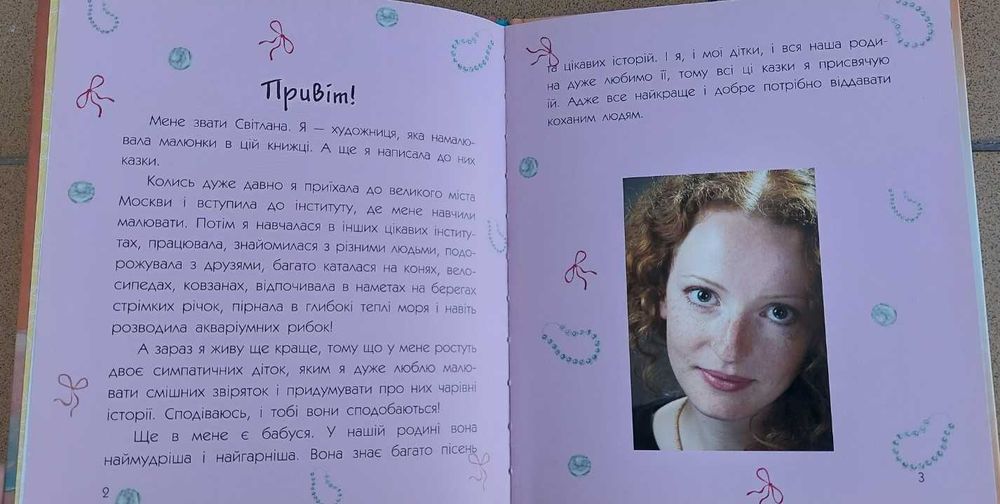 Привіт!
Мене звати Світлана. Я — художниця, яка намалю-
вала малюнки в цій книжці. А ще я написала до них
казки.
Колись дуже давно я приїхала до великого міста
Москви і вступила до інституту, де мене навчили
малювати. Потім я навчалася в інших цікавих інститу-
тах, працювала, знайомилася з різними людьми, подо-
рожувала з друзями, багато каталася на конях, вело-
сипедах, ковзанах, відпочивала в наметах на берегах
стрімких річок, пірнала в глибокі теплі моря і навіть
розводила акваріумних рибок!
А зараз я живу ще краще, тому що у мене ростуть
двоє симпатичних діток, яким я дуже люблю малю-
вати смішних звіряток і придумувати про них чарівні
історії. Сподіваюсь, і тобі вони сподобаються!
Ще в мене є бабуся. У нашій родині вона
наймудріша і найгарніша. Вона знає багато пісень
2
та цікавих історій. І я, і мої дітки, і вся наша роди-
на дуже любимо її, тому всі ці казки я присвячую
їй. Адже все найкраще і добре потрібно віддавати
коханим людям.
3